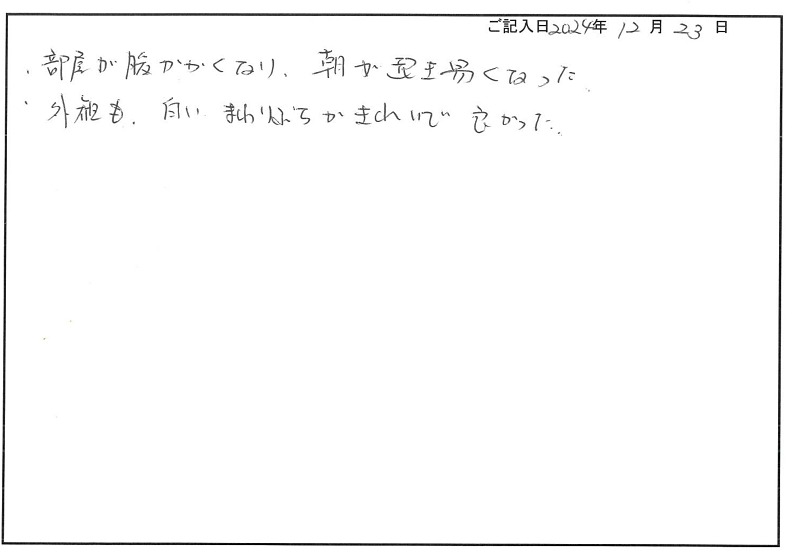 ご記入日2024年 12月 23日
・部屋が暖かくなり、朝が起き易くなった。
・外観も、白いまわりぶちがきれいで良かった。